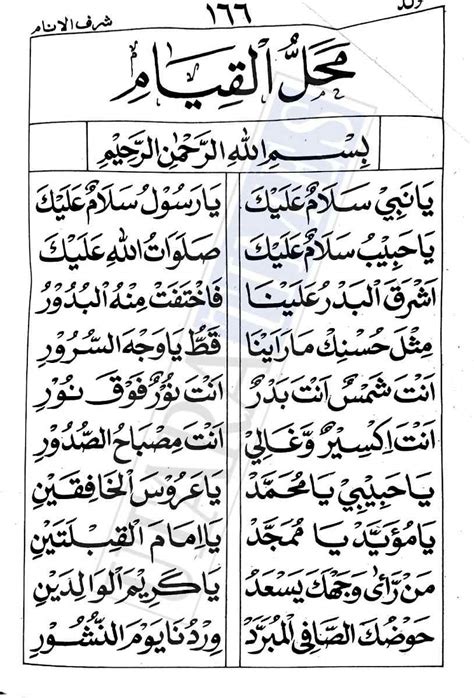 ولد ١٦٦ شرف الانام
مَحَلُّ الْقِيَامِ
بِسْمِ اللهِ الرَّحْمٰنِ الرَّحِيْمِ
يَا نَبِيْ سَلَامٌ عَلَيْكَ يَا رَسُوْلْ سَلَامٌ عَلَيْكَ
يَا حَبِيْبُ سَلَامٌ عَلَيْكَ صَلَوَاتُ اللهِ عَلَيْكَ
اَشْرَقَ الْبَدْرُ عَلَيْنَا فَاخْتَفَتْ مِنْهُ الْبُدُوْرُ
مِثْلَ حُسْنِكْ مَا رَاَيْنَا قَطُّ يَا وَجْهَ السُّرُوْرِ
اَنْتَ شَمْسٌ اَنْتَ بَدْرٌ اَنْتَ نُوْرٌ فَوْقَ نُوْرٍ
اَنْتَ اِكْسِيْرٌ وَّغَالِيْ اَنْتَ مِصْبَاحُ الصُّدُوْرِ
يَا حَبِيْبِيْ يَا مُحَمَّدْ يَا عَرُوْسَ الْخَافِقَيْنِ
يَا مُؤَيَّدْ يَا مُمَجَّدْ يَا اِمَامَ الْقِبْلَتَيْنِ
مَنْ رَّاٰى وَجْهَكَ يَسْعَدُ يَا كَرِيْمَ الْوَالِدَيْنِ
حَوْضُكَ الصَّافِى الْمُبَرَّدْ وِرْدُنَا يَوْمَ النُّشُوْرِ